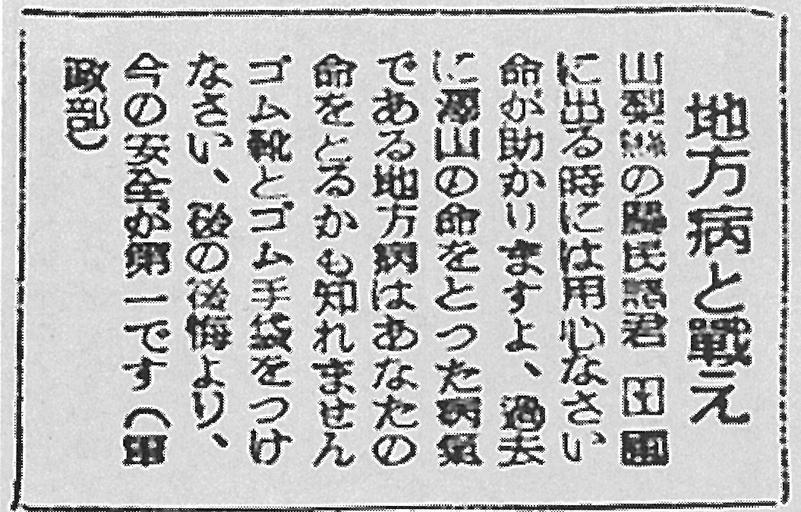 地方病と戰え
山梨縣の農民諸君　田圃
に出る時には用心なさい
命が助かりますよ、過去
に澤山の命をとつた病気
である地方病はあなたの
命をとるかも知れません
ゴム靴とゴム手袋をつけ
なさい、後の後悔より、
今の安全が第一です（軍
政部）